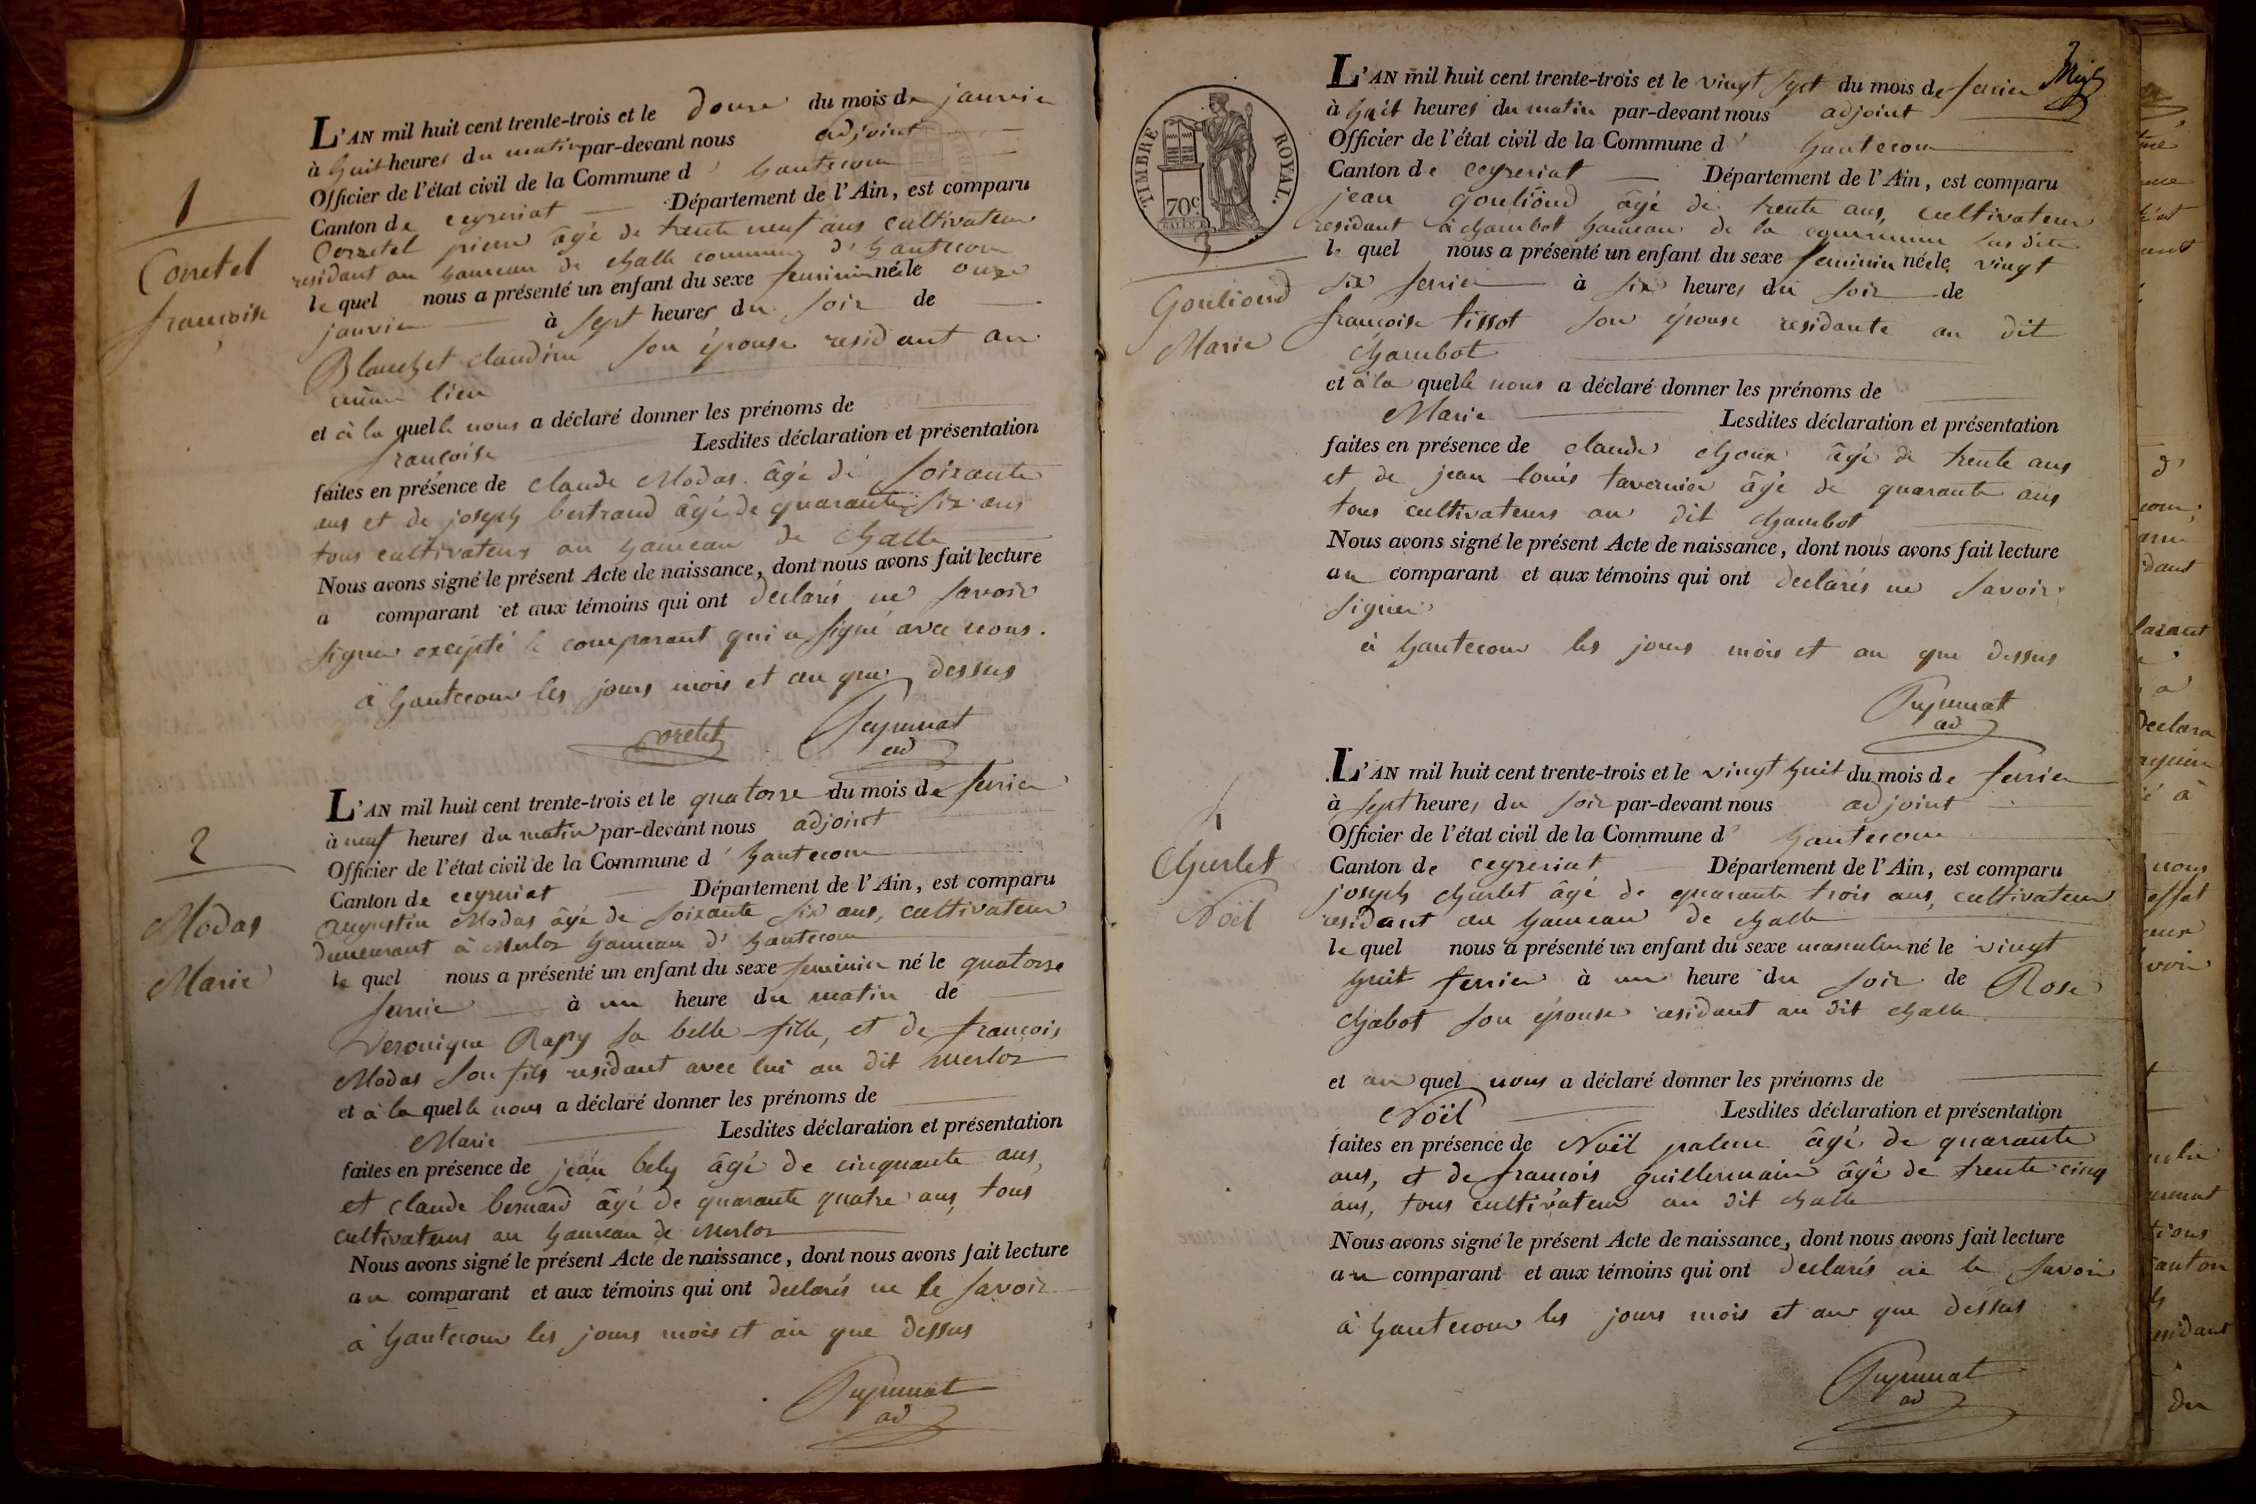 1
Corretel
françoise
L'AN mil huit cent trente-trois et le douze du mois de janvier
à huit heures du matin par-devant nous adjoint
Officier de l'état civil de la Commune d' hautecour
Canton de ceyzeriat Département de l'Ain, est comparu
Corretel âgé de trente neuf ans cultivateur
residant au hameau de challe commune d'hautecour
le quel nous a présenté un enfant du sexe feminin née le onze
janvier à sept heures du soir de
Blanchet claudine son épouse residant au
même lieu
et à la quelle nous a déclaré donner les prénoms de
françoise Lesdites déclaration et présentation
faites en présence de claude Modas âgé de soixante
ans et de joseph bertrand âgé de quarante six ans
tous cultivateurs au hameau de challe
Nous avons signé le présent Acte de naissance, dont nous avons fait lecture
a comparant et aux témoins qui ont declarés ne savoir
signer excepté le comparant qui a signé avec nous.
à hautecour les jours mois et an que dessus
Coretel
ad
2
Modas
Marie
L'AN mil huit cent trente-trois et le quatorze du mois de fevrier
à neuf heures du matin par-devant nous adjoint
Officier de l'état civil de la Commune d' hautecour
Canton de ceyzeriat Département de l'Ain, est comparu
augustin Modas âgé de soixante six ans, cultivateur
demeurant à Merloz hameau d'hautecour
le quel nous a présenté un enfant du sexe feminin né le quatorze
fevrier à un heure du matin de
Veronique Rapy sa belle fille, et de françois
Modas son fils residant avec lui au dit merloz
et à la quelle nous a déclaré donner les prénoms de
Marie Lesdites déclaration et présentation
faites en présence de jean bely âgé de cinquante ans,
et claude bernard âgé de quarante quatre ans, tous
cultivateurs au hameau de Merloz
Nous avons signé le présent Acte de naissance, dont nous avons fait lecture
au comparant et aux témoins qui ont declarés ne le savoir
à hautecour les jours mois et an que dessus
ad
2
TIMBRE ROYAL.
70c
3
Gouliond
Marie
L'AN mil huit cent trente-trois et le vingt sept du mois de fevrier
à huit heures du matin par-devant nous adjoint
Officier de l'état civil de la Commune d' hautecour
Canton de ceyzeriat Département de l'Ain, est comparu
jean gouliond âgé de trente ans, cultivateur
residant à chambot hameau de la commune sus dite
le quel nous a présenté un enfant du sexe feminin née le vingt
six fevrier à six heures du soir de
françoise tissot son épouse residante au dit
chambot
et à la quelle nous a déclaré donner les prénoms de
Marie Lesdites déclaration et présentation
faites en présence de claude choux âgé de trente ans
et de jean louis tavernier âgé de quarante ans
tous cultivateurs au dit chambot
Nous avons signé le présent Acte de naissance, dont nous avons fait lecture
au comparant et aux témoins qui ont declarés ne savoir
signer
à hautecour les jours mois et an que dessus
ad
4
Churlet
Noël
L'AN mil huit cent trente-trois et le vingt huit du mois de fevrier
à sept heures du soir par-devant nous adjoint
Officier de l'état civil de la Commune d' hautecour
Canton de ceyzeriat Département de l'Ain, est comparu
joseph churlet âgé de quarante trois ans, cultivateur
residant au hameau de challe
le quel nous a présenté un enfant du sexe masculin né le vingt
huit fevrier à un heure du soir de Rose
chabot son épouse residant au dit challe
et au quel nous a déclaré donner les prénoms de
Noël Lesdites déclaration et présentation
faites en présence de Noël palme âgé de quarante
ans, et de françois guillermain âgé de trente cinq
ans, tous cultivateur au dit challe
Nous avons signé le présent Acte de naissance, dont nous avons fait lecture
au comparant et aux témoins qui ont declarés ne le savoir
à hautecour les jours mois et an que dessus
ad